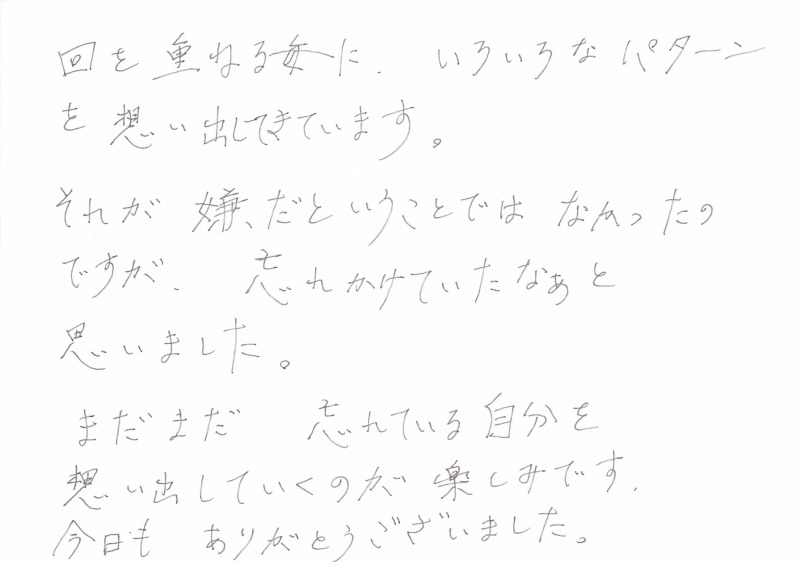 回を重ねる毎に、いろいろなパターン
を想い出してきています。
それが嫌だということではなかったの
ですが、忘れかけていたなぁと
思いました。
まだまだ忘れている自分を
想い出していくのが楽しみです。
今日もありがとうございました。